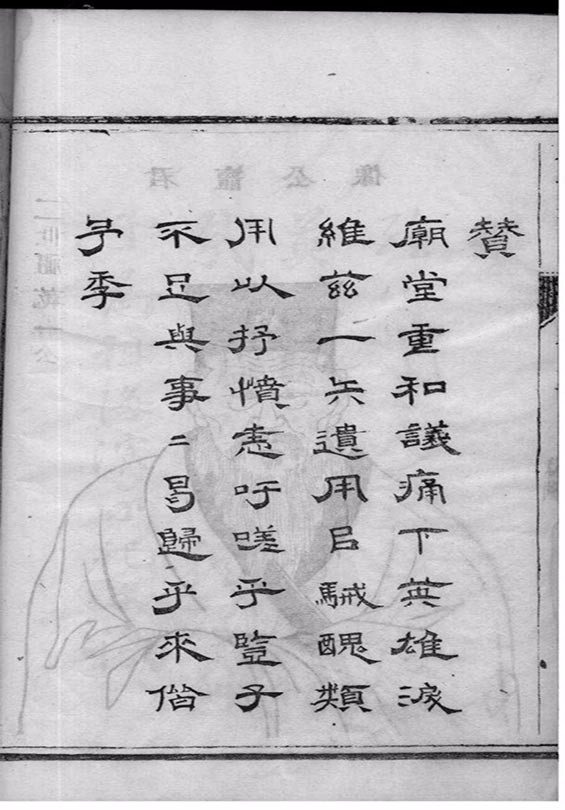 賛
廟堂重和議痛下英雄淚
維茲一矢遺用㠯駴醜類
用以抒憤恚吁嗟乎豎子
不足與事二曷歸乎來偕
予季